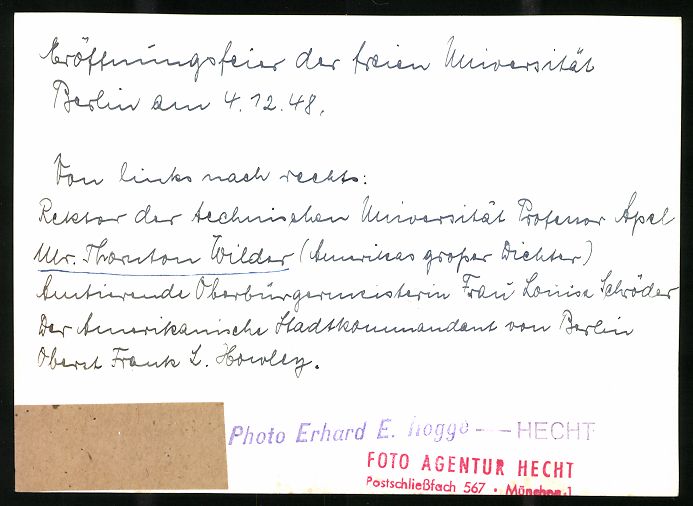 Eröffnungsfeier der freien Universität
Berlin am 4.12.48.
Von links nach rechts:
Rektor der technischen Universität Professor Apel
Mr. Thornton Wilder (Amerikas großer Dichter)
Amtierende Oberbürgermeisterin Frau Louise Schröder
Der Amerikanische Stadtkommandant von Berlin
Oberst Frank L. Howley.
Photo Erhard E. Rogge — HECHT
FOTO AGENTUR HECHT
Postschließfach 567 · München 1